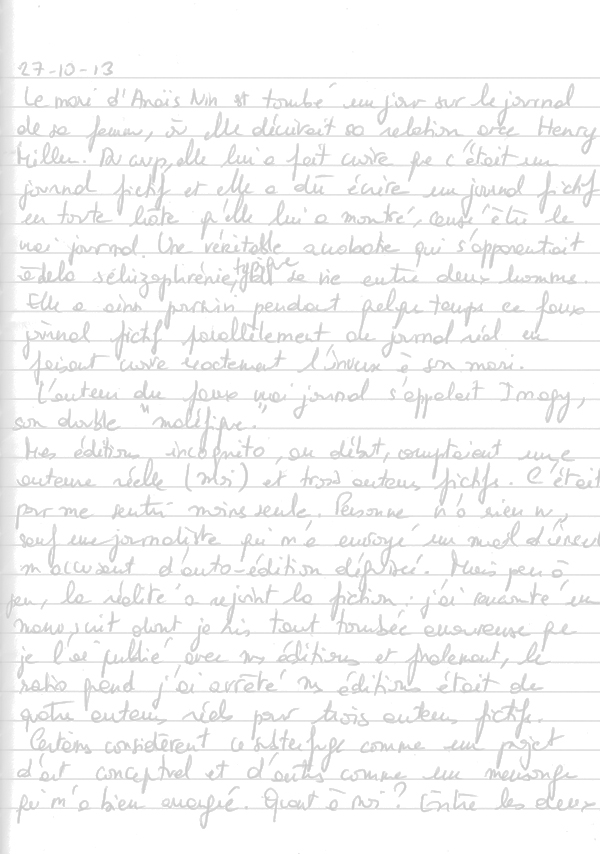 27-10-13
Le mari d'Anaïs Nin est tombé un jour sur le journal
de sa femme, où elle décrivait sa relation avec Henry
Miller. Du coup, elle lui a fait croire que c'était un
journal fictif et elle a dû écrire un journal fictif
en toute hâte qu'elle lui a montré, censé être le
vrai journal. Une véritable acrobate qui s'apparentait
à de la schizophrénie, typique de sa vie entre deux hommes.
Elle a ainsi poursuivi pendant quelque temps ce faux
journal fictif parallèlement au journal réel en
faisant croire exactement l'inverse à son mari.
L'auteur du faux vrai journal s'appelait Imagy,
son double "maléfique".
Mes éditions incognito, au début, comptaient une
auteure réelle (moi) et trois auteurs fictifs. C'était
pour me sentir moins seule. Personne n'a rien vu,
sauf une journaliste qui m'a envoyé un mail
m'accusant d'auto-édition déguisée. Mais peu à
peu, la réalité a rejoint la fiction : j'ai rencontré un
manuscrit dont je suis tout tombée amoureuse que
je l'ai publié avec mes éditions et finalement, le
ratio quand j'ai arrêté mes éditions était de
quatre auteurs réels pour trois auteurs fictifs.
Certains considèrent ce subterfuge comme un projet
d'art conceptuel et d'autres comme un mensonge
qui m'a bien arrangé. Quant à moi ? Entre les deux